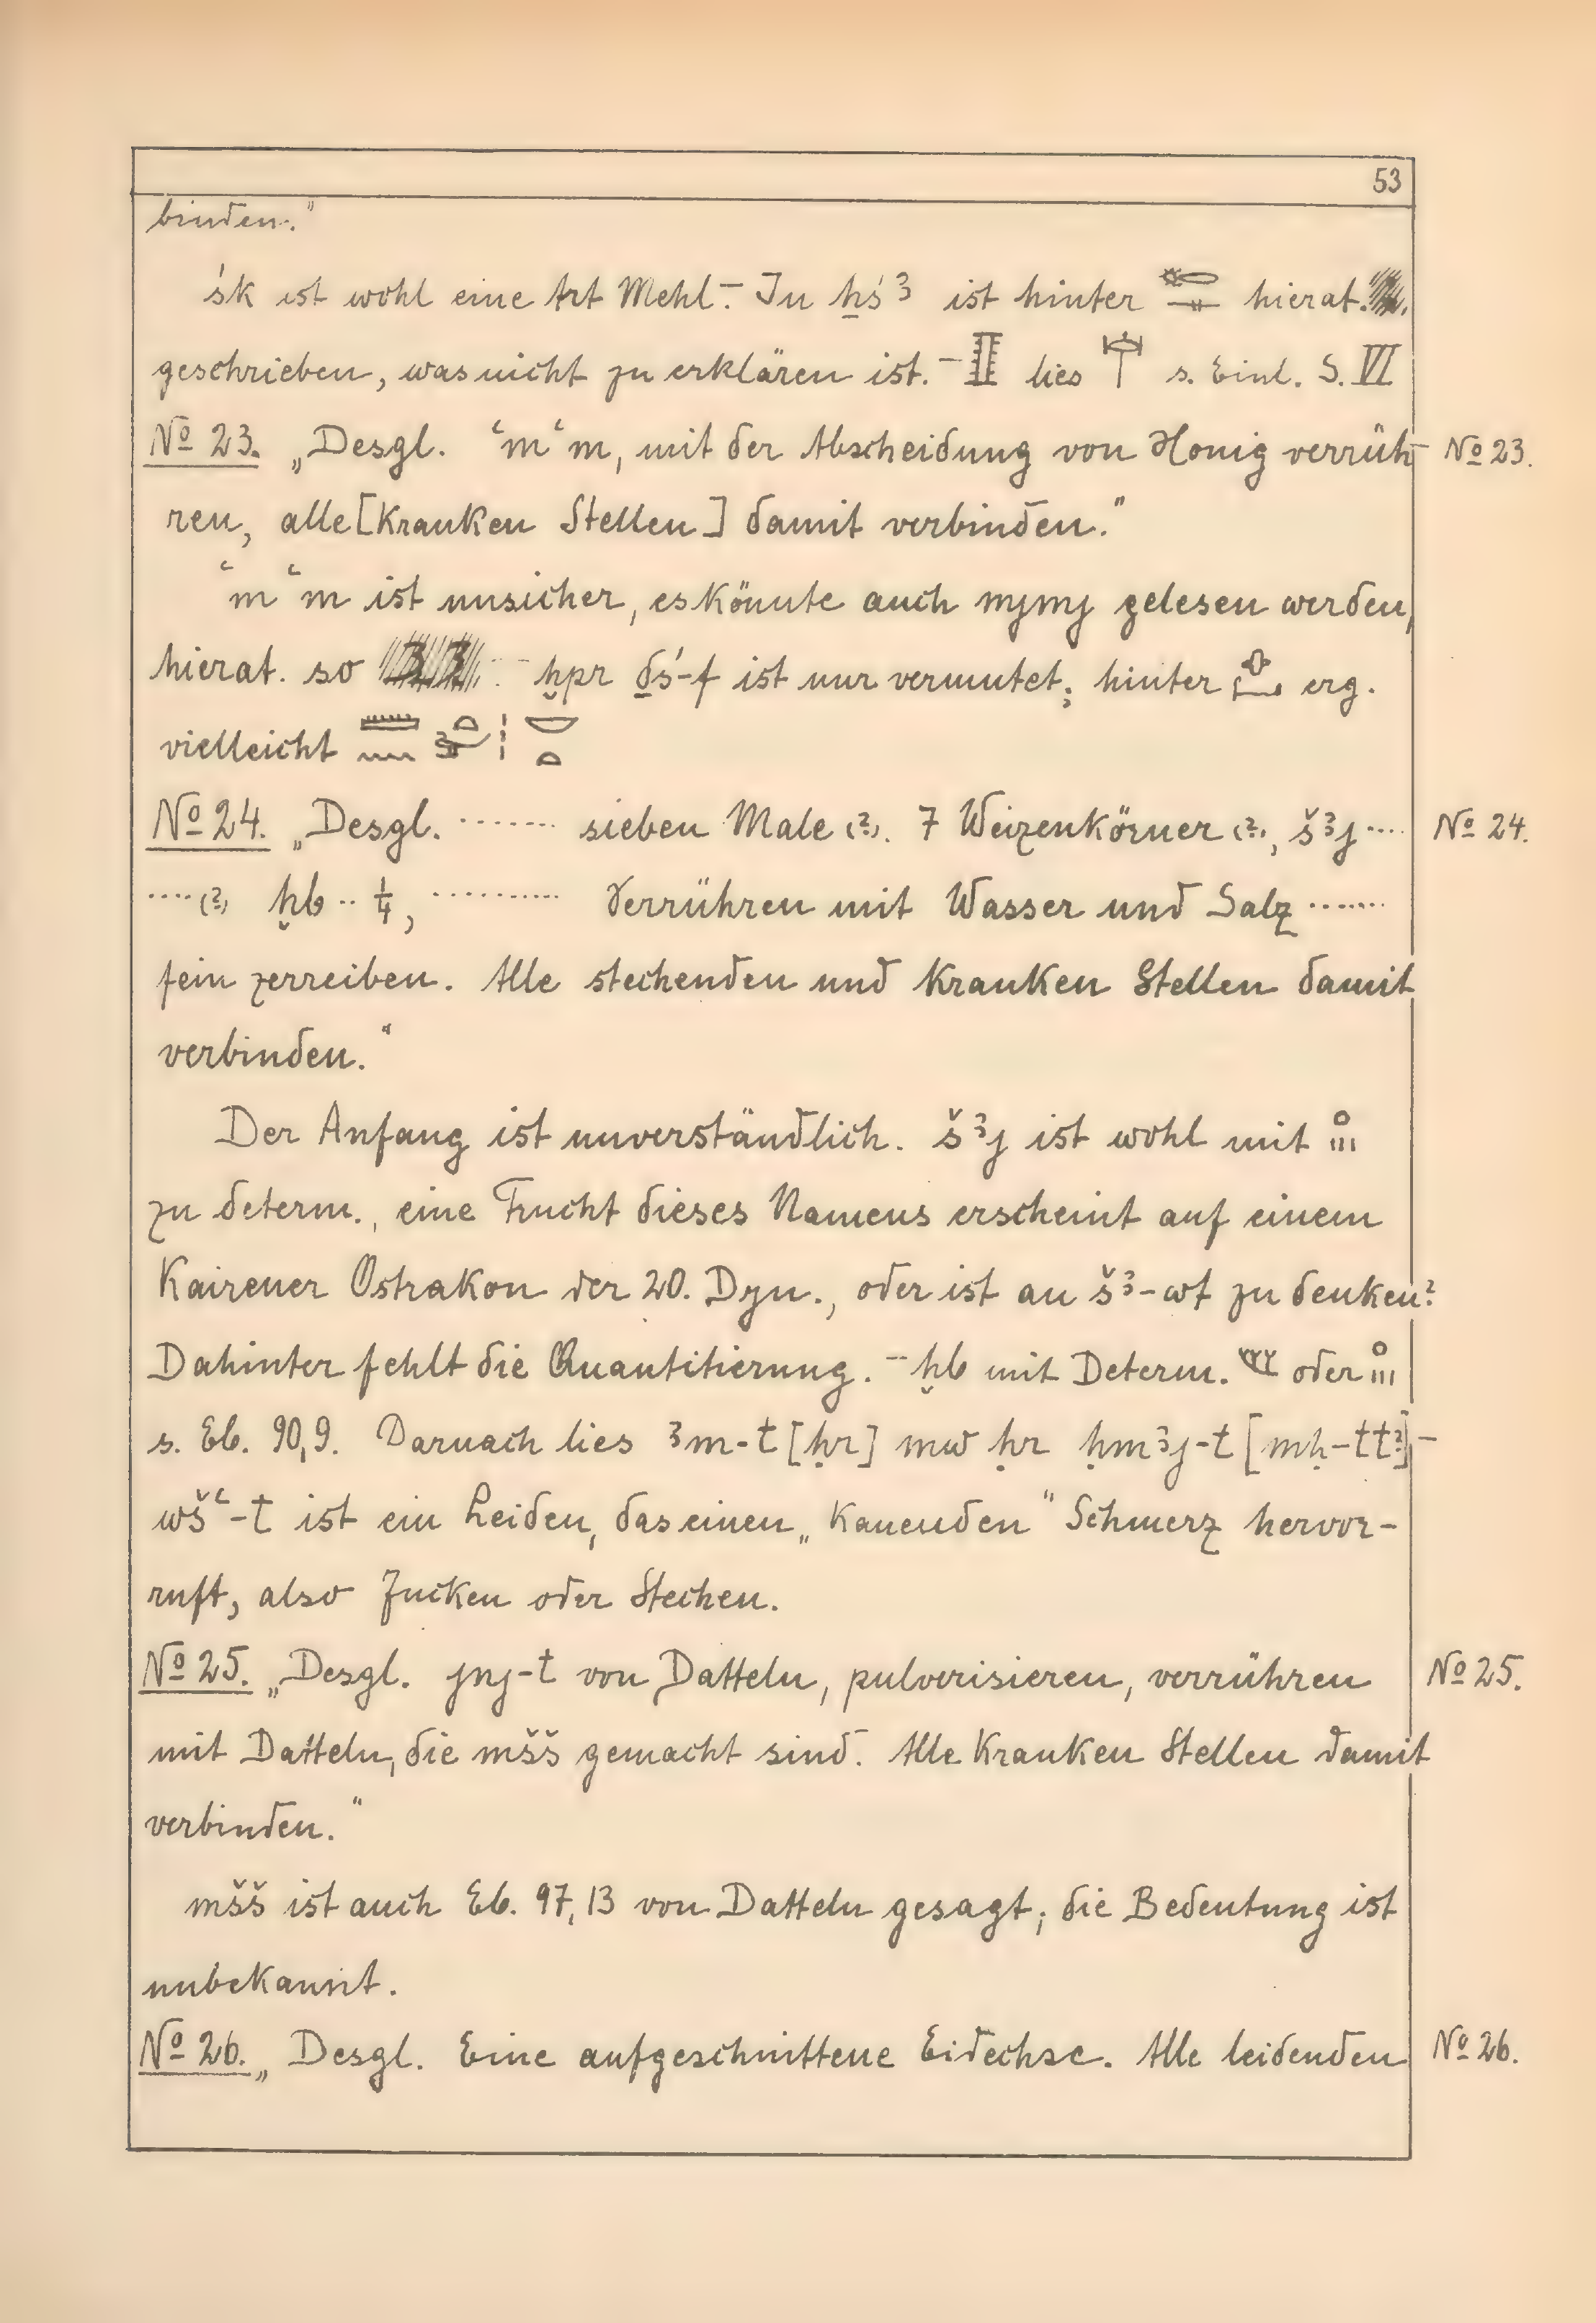 53
binden."
śk ist wohl eine Art Mehl. – In ẖś3 ist hinter hierat.
geschrieben, was nicht zu erklären ist. – lies s. Einl. S. VI
No 23. „Desgl. ʿmʿm, mit der Abscheidung von Honig verrüh- No 23.
ren, alle [kranken Stellen] damit verbinden."
ʿmʿm ist unsicher, es könnte auch mjmj gelesen werden,
hierat. so – ḫpr ḏś-f ist nur vermutet; hinter erg.
vielleicht
No 24. „Desgl. ....... sieben Male (?). 7 Weizenkörner (?), š3j .... No 24.
.... (?) ḫb .. 1/4, .......... Verrühren mit Wasser und Salz .......
fein zerreiben. Alle stechenden und kranken Stellen damit
verbinden."
Der Anfang ist unverständlich. š3j ist wohl mit
zu determ., eine Frucht dieses Namens erscheint auf einem
Kairener Ostrakon der 20. Dyn., oder ist an š3-wt zu denken?
Dahinter fehlt die Quantitierung. – ḫb mit Determ. oder
s. Eb. 90,9. Darnach lies 3m-t [ḥr] mw ḥr ḥm3j-t [mḥ-tt?] –
wšʿ-t ist ein Leiden, das einen „kauenden" Schmerz hervor-
ruft, also Jucken oder Stechen.
No 25. „Desgl. jnj-t von Datteln, pulverisieren, verrühren No 25.
mit Datteln, die mšš gemacht sind. Alle kranken Stellen damit
verbinden."
mšš ist auch Eb. 97,13 von Datteln gesagt; die Bedeutung ist
unbekannt.
No 26. „Desgl. Eine aufgeschnittene Eidechse. Alle leidenden No 26.